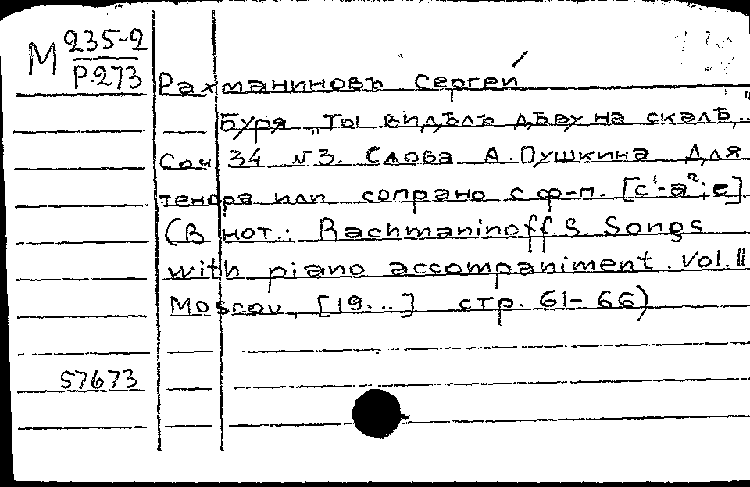 М 235-2
Р.273
Рахманиновъ Сергей
Буря „Ты видѣлъ дѣву на скалѣ,"
Соч 34 №3. Слова А.Пушкина Для
тенора или сопрано с ф-п. [c'-a²; e]
(В нот.: Rachmaninoff S Songs
with piano accompaniment. Vol. II
Moscou, [19...] стр. 61-66)
57673